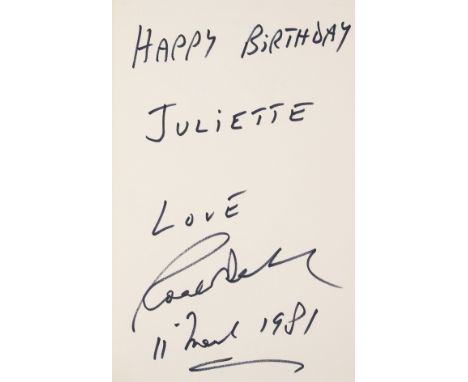 HAPPY BiRTHDAY
JULiETTE
LOVE
Roald Dahl
11 March 1981